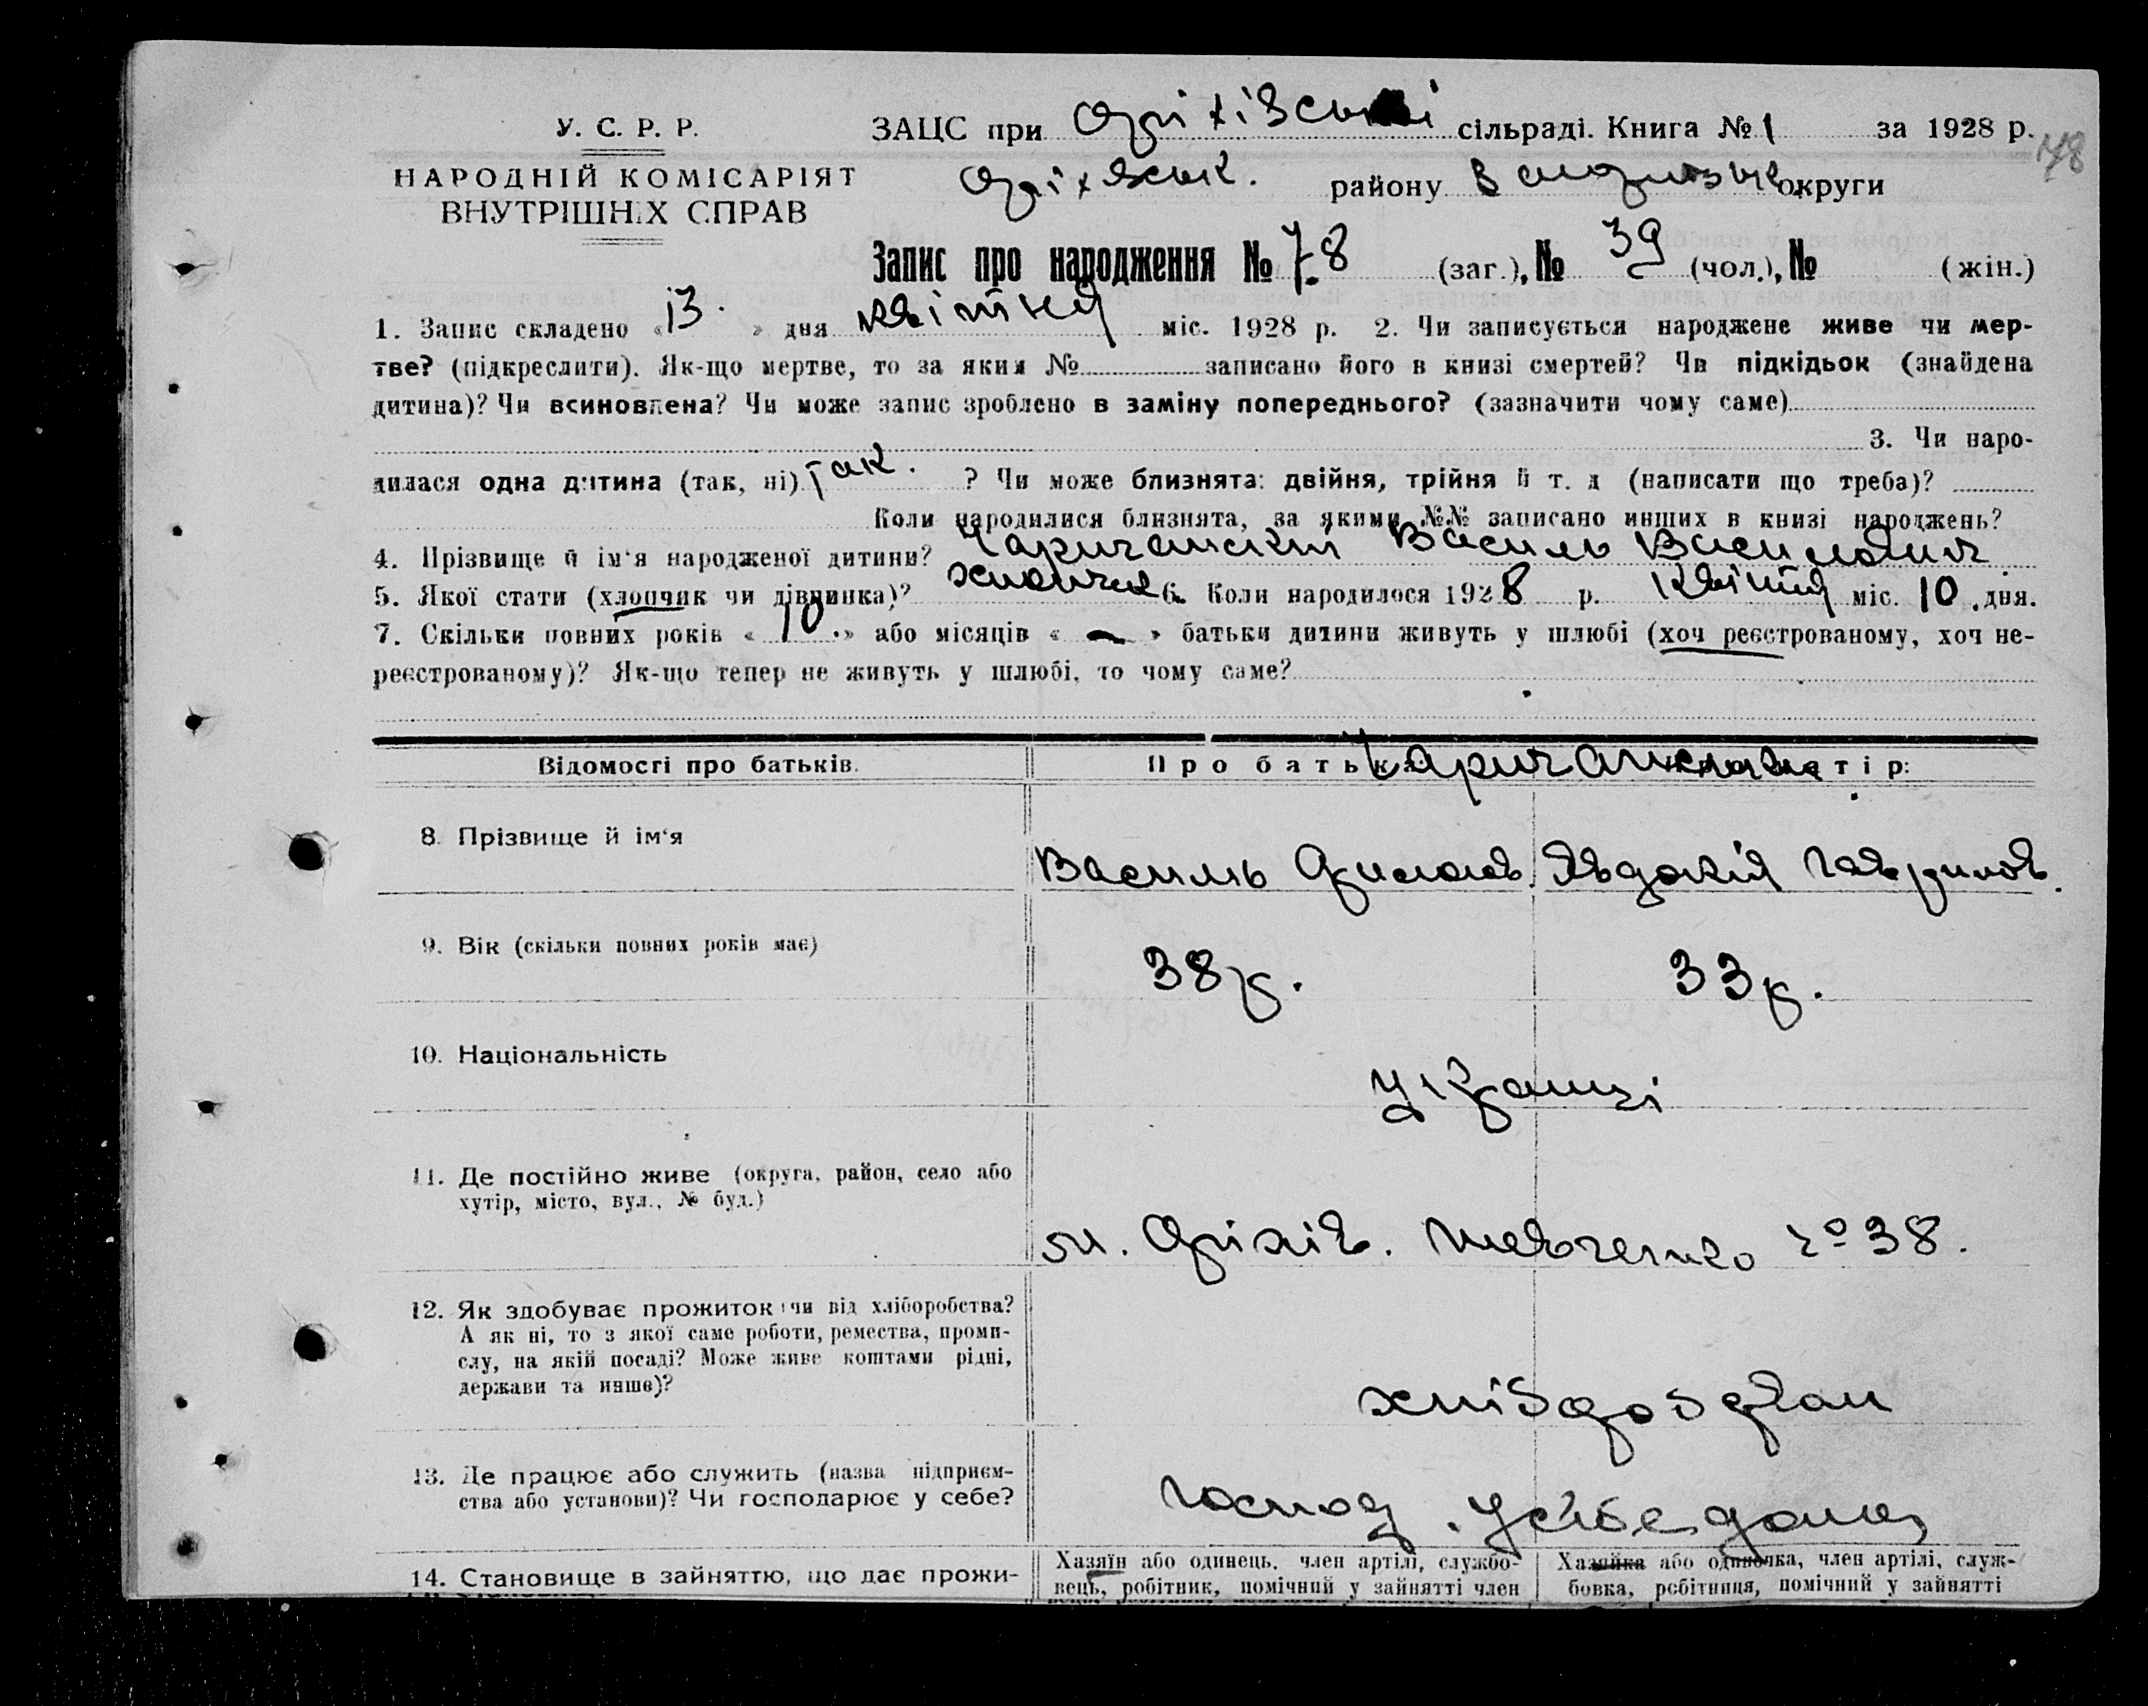 У. С. Р. Р.
НАРОДНІЙ КОМІСАРІЯТ
ВНУТРІШНІХ СПРАВ
ЗАЦС при Оріхівські сільраді. Книга № 1 за 1928 р.
78
Оріхівськ. району Запорізьк округи
Запис про народження № 78 (заг.), № 39 (чол.), № (жін.)
1. Запис складено « 13 » дня квітня міс. 1928 р. 2. Чи записується народжене живе чи мер-
тве? (підкреслити). Як-що мертве, то за яким № записано його в книзі смертей? Чи підкідьок (знайдена
дитина)? Чи всиновлена? Чи може запис зроблено в заміну попереднього? (зазначити чому саме)
3. Чи наро-
дилася одна дитина (так, ні) так. ? Чи може близнята: двійня, трійня й т. д (написати що треба)?
Коли народилися близнята, за якими №№ записано инших в книзі народжень?
4. Прізвище й ім'я народженої дитини? Чаричанский Василь Васильович
5. Якої стати (хлопчик чи дівчинка)? хлопчик 6. Коли народилося 1928 р. квітня міс. 10 дня.
7. Скільки повних років « 10 » або місяців « — » батьки дитини живуть у шлюбі (хоч реєстрованому, хоч не-
реєстрованому)? Як-що тепер не живуть у шлюбі, то чому саме?
Відомості про батьків. Про батька: тір:
8. Прізвище й ім'я
Василь Явдокія Гаврилов.
9. Вік (скільки повних років має) 38 р. 33 р.
10. Національність
Українці
11. Де постійно живе (округа, район, село або
хутір, місто, вул., № буд.)
м. Оріхів. Шевченко № 38.
12. Як здобуває прожиток (чи від хліборобства?
А як ні, то з якої саме роботи, ремества, проми-
слу, на якій посаді? Може живе коштами рідні,
держави та инше)?
хлібороб
13. Де працює або служить (назва підприєм-
ства або установи)? Чи господарює у себе?
Господ. у себе дома
14. Становище в зайняттю, що дає прожи-
Хазяїн або одинець, член артілі, службо-
вець, робітник, помічний у зайнятті член
Хазяйка або одиночка, член артілі, служ-
бовка, робітниця, помічний у зайнятті